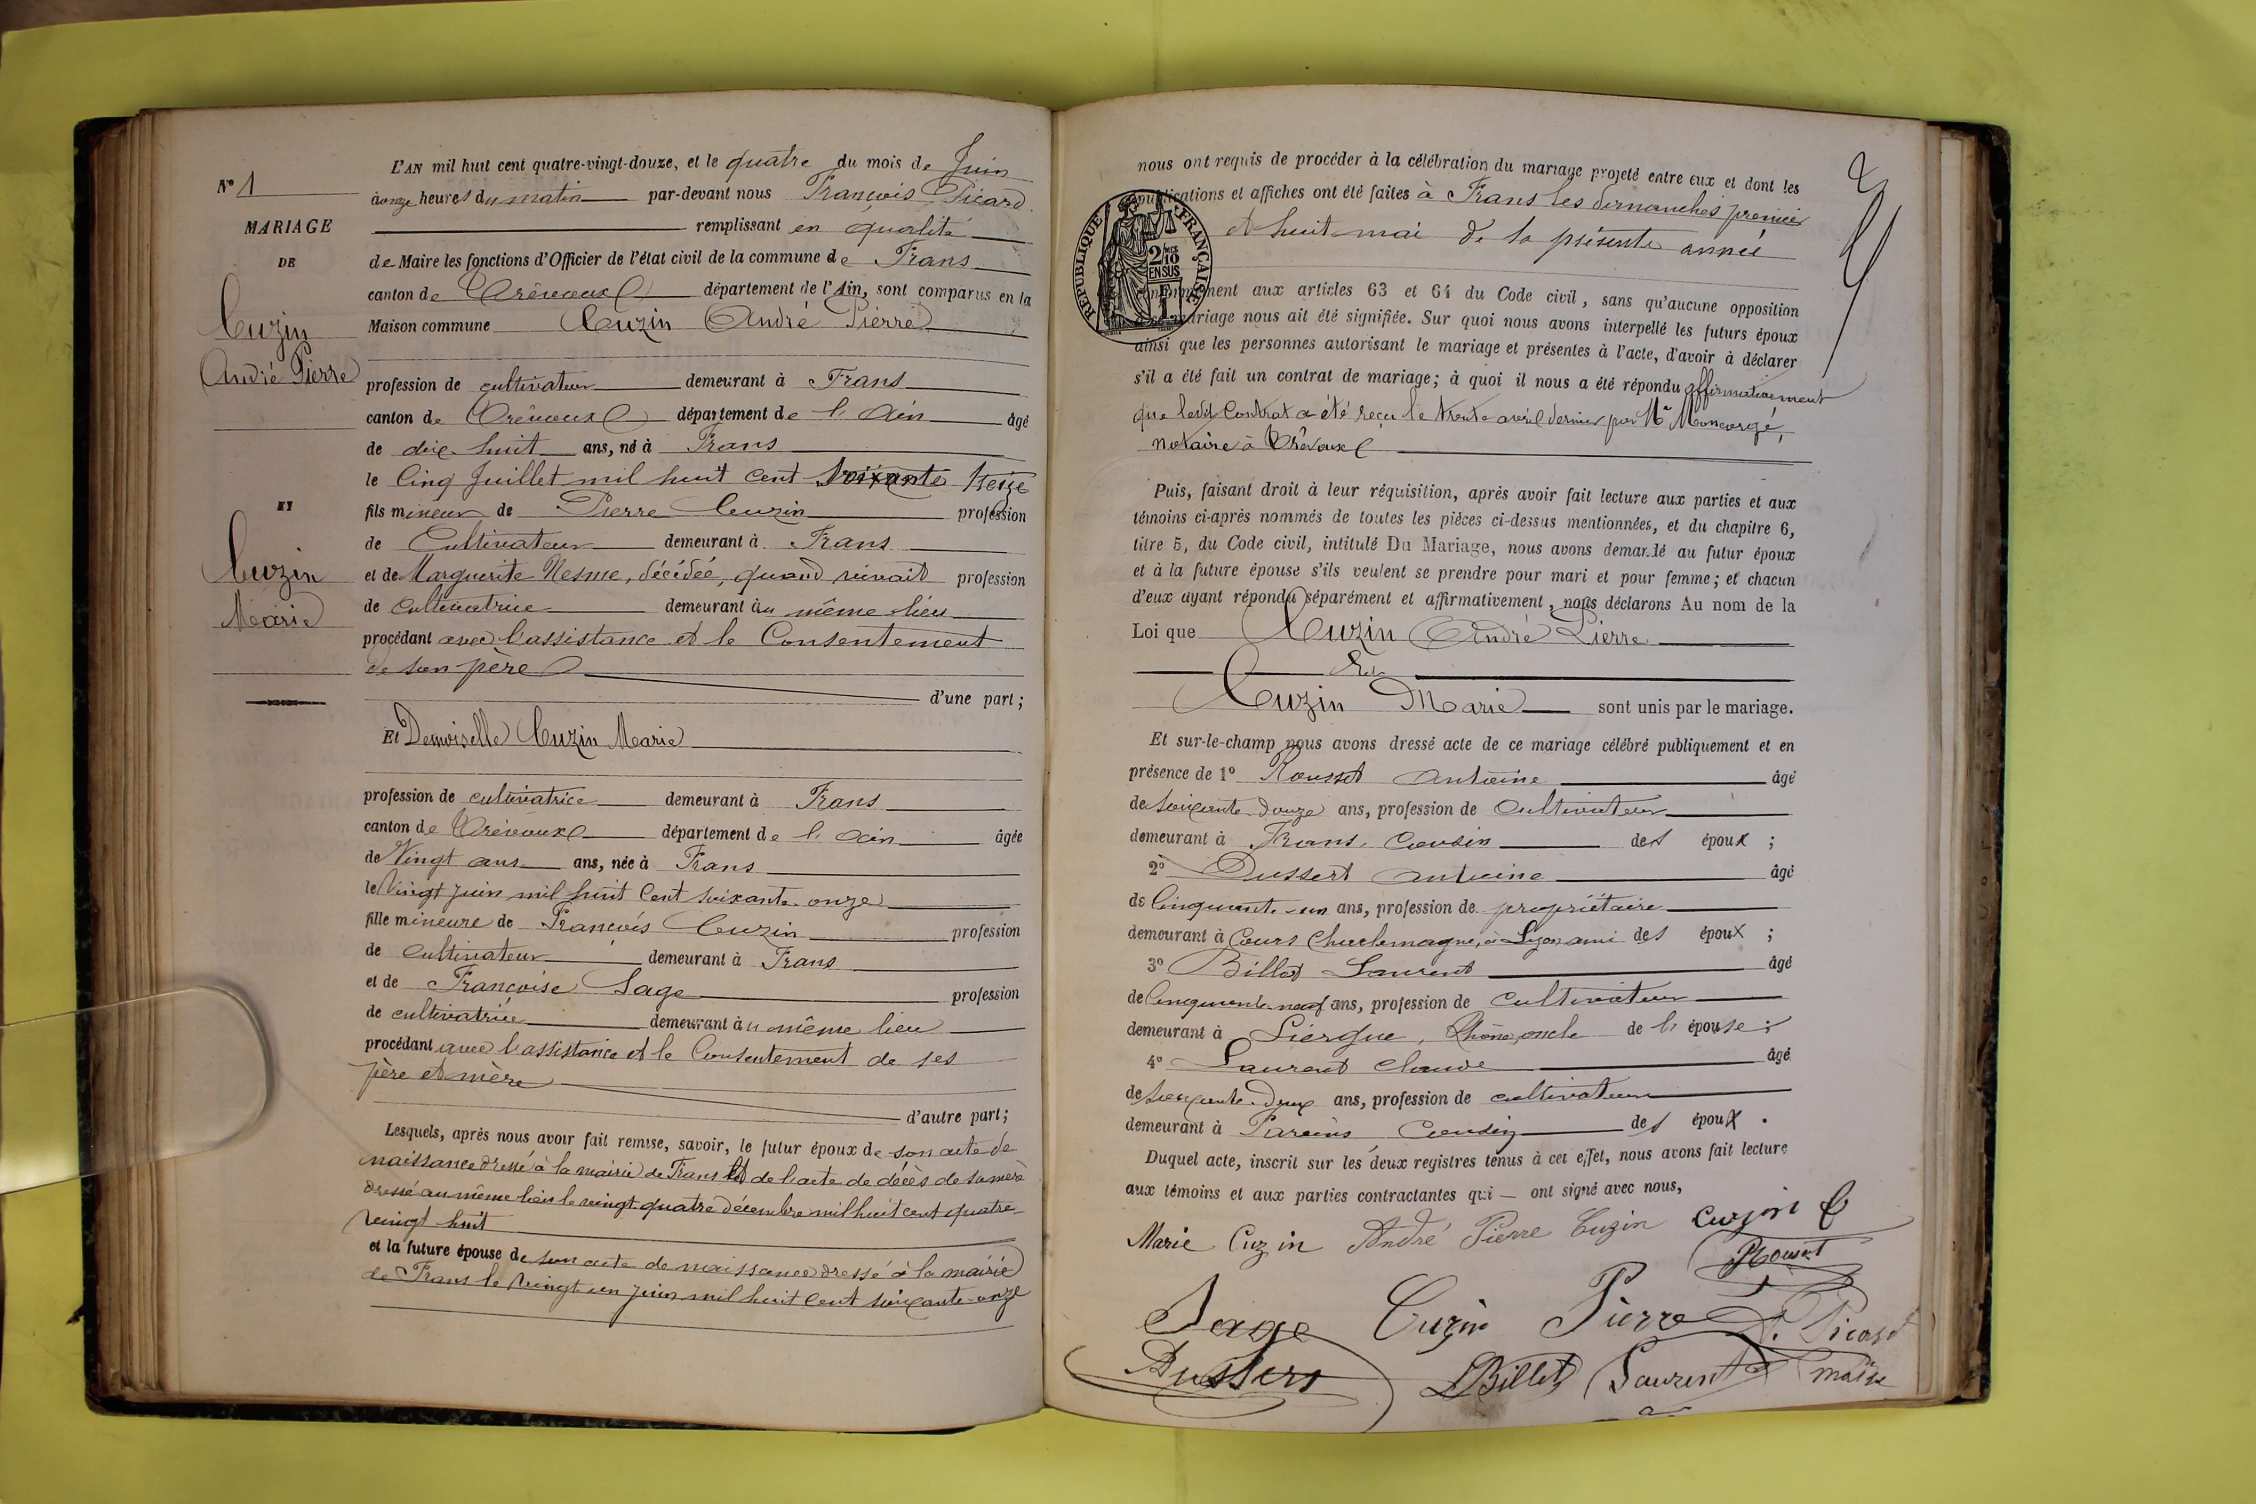 N° 1
MARIAGE
DE
Cuzin
André Pierre
ET
Cuzin
Marie
L'AN mil huit cent quatre-vingt-douze, et le quatre du mois de Juin
à onze heures du matin par-devant nous François Picard
remplissant en qualité
de Maire les fonctions d'Officier de l'état civil de la commune de Frans
canton de Trévoux département de l'Ain, sont comparus en la
Maison commune Cuzin André Pierre
profession de cultivateur demeurant à Frans
canton de Trévoux département de l'Ain âgé
de dix-huit ans, né à Frans
le Cinq Juillet mil huit cent soixante treize
fils mineur de Pierre Cuzin profession
de Cultivateur demeurant à Frans
et de Marguerite Nesme, décédée, quand vivait profession
de cultivatrice demeurant au même lieu
procédant avec l'assistance et le Consentement
de son père
d'une part;
Et Demoiselle Cuzin Marie
profession de cultivatrice demeurant à Frans
canton de Trévoux département de l'Ain âgée
de Vingt ans ans, née à Frans
le Vingt juin mil huit Cent soixante-onze
fille mineure de François Cuzin profession
de cultivateur demeurant à Frans
et de Françoise Sage profession
de cultivatrice demeurant au même lieu
procédant avec l'assistance et le Consentement de ses
père et mère
d'autre part;
Lesquels, après nous avoir fait remise, savoir, le futur époux de son acte de
naissance dressé à la mairie de Frans et de l'acte de décès de sa mère
dressé au même lieu le vingt-quatre décembre mil huit cent quatre-
vingt huit
et la future épouse de son acte de naissance dressé à la mairie
de Frans le vingt un juin mil huit cent soixante-onze
nous ont requis de procéder à la célébration du mariage projeté entre eux et dont les
publications et affiches ont été faites à Frans les dimanches premier
et huit mai de la présente année
RÉPUBLIQUE FRANÇAISE
2/10
EN SUS
conformément aux articles 63 et 64 du Code civil, sans qu'aucune opposition
à ce mariage nous ait été signifiée. Sur quoi nous avons interpellé les futurs époux
ainsi que les personnes autorisant le mariage et présentes à l'acte, d'avoir à déclarer
s'il a été fait un contrat de mariage; à quoi il nous a été répondu affirmativement
que ledit Contrat a été reçu le trente avril dernier par Me Moncorgé,
notaire à Trévoux
Puis, faisant droit à leur réquisition, après avoir fait lecture aux parties et aux
témoins ci-après nommés de toutes les pièces ci-dessus mentionnées, et du chapitre 6,
titre 5, du Code civil, intitulé Du Mariage, nous avons demandé au futur époux
et à la future épouse s'ils veulent se prendre pour mari et pour femme; et chacun
d'eux ayant répondu séparément et affirmativement, nous déclarons Au nom de la
Loi que Cuzin André Pierre
Et
Cuzin Marie sont unis par le mariage.
Et sur-le-champ nous avons dressé acte de ce mariage célébré publiquement et en
présence de 1° Rousset Antoine âgé
de soixante-douze ans, profession de Cultivateur
demeurant à Frans, Cousin des époux ;
2° Dussert Antoine âgé
de Cinquante-un ans, profession de propriétaire
demeurant à Cours Charlemagne, à Lyon ami des époux ;
3° Billet Laurent âgé
de Cinquante-neuf ans, profession de Cultivateur
demeurant à Liergue, Rhône, oncle de l'épouse;
4° Laurent Claude âgé
de soixante-deux ans, profession de cultivateur
demeurant à Parcieux Cousin des époux.
Duquel acte, inscrit sur les deux registres tenus à cet effet, nous avons fait lecture
aux témoins et aux parties contractantes qui — ont signé avec nous,
Marie Cuzin André Pierre Cuzin Cuzin
Rousset
Sage Cuzin Pierre F. Picard
Dussert LBillet Laurent maire